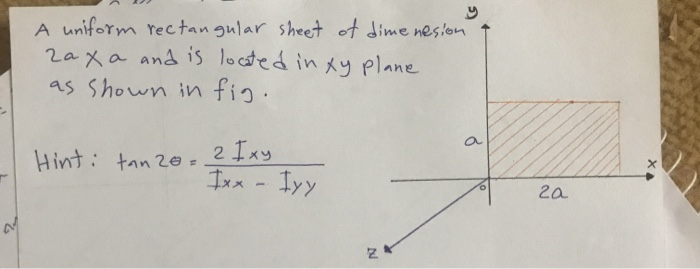 A uniform rectangular sheet of dimenesion
2a x a and is located in xy plane
as shown in fig.
Hint: tan 2θ = 2 Ixy / Ixx - Iyy
y
a
x
o
2a
z